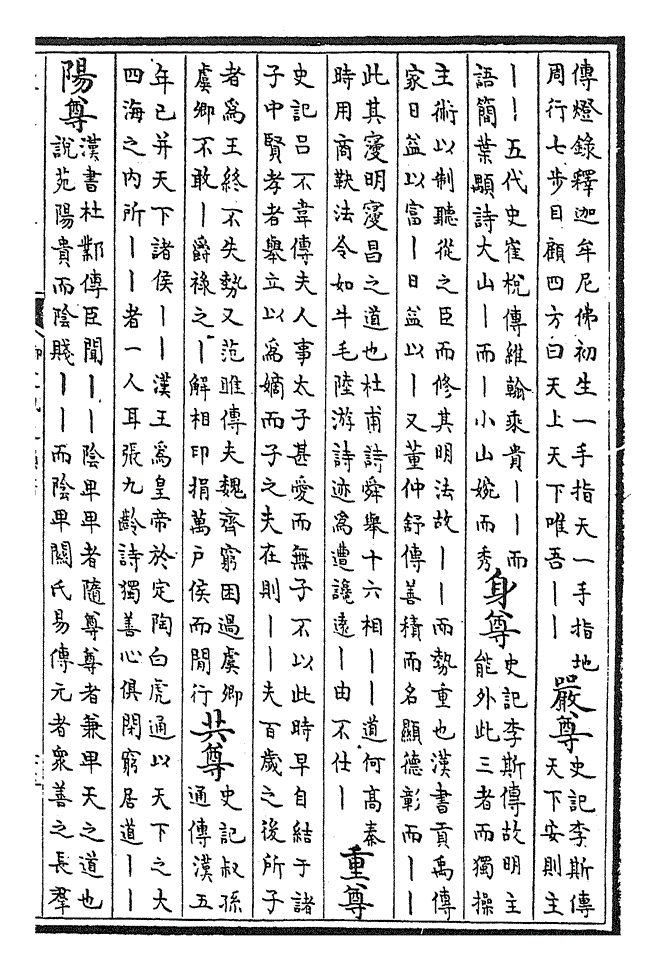 傳燈錄釋迦牟尼佛初生一手指天一手指地
周行七步目顧四方曰天上天下唯吾丨丨
嚴尊
史記李斯傳
天下安則主
丨丨五代史崔梲傳維翰乘貴丨丨而
語簡葉顒詩大山丨而丨小山婉而秀
身尊
史記李斯傳故明主
能外此三者而獨操
主術以制聽從之臣而修其明法故丨丨而勢重也漢書貢禹傳
家日益以富丨日益以丨又董仲舒傳善積而名顯德彰而丨丨
此其寖明寖昌之道也杜甫詩舜舉十六相丨丨道何高秦
時用商鞅法令如牛毛陸游詩迹爲遭讒遠丨由不仕丨
重尊
史記呂不韋傳夫人事太子甚愛而無子不以此時早自結于諸
子中賢孝者舉立以爲嫡而子之夫在則丨丨夫百歲之後所子
者爲王終不失勢又范雎傳夫魏齊窮困過虞卿
虞卿不敢丨爵祿之丨解相印捐萬戶侯而閒行
共尊
史記叔孫
通傳漢五
年已并天下諸侯丨丨漢王爲皇帝於定陶白虎通以天下之大
四海之內所丨丨者一人耳張九齡詩獨善心俱閉窮居道丨丨
陽尊
漢書杜鄴傳臣聞丨丨陰卑卑者隨尊尊者兼卑天之道也
說苑陽貴而陰賤丨丨而陰卑關氏易傳元者衆善之長羣